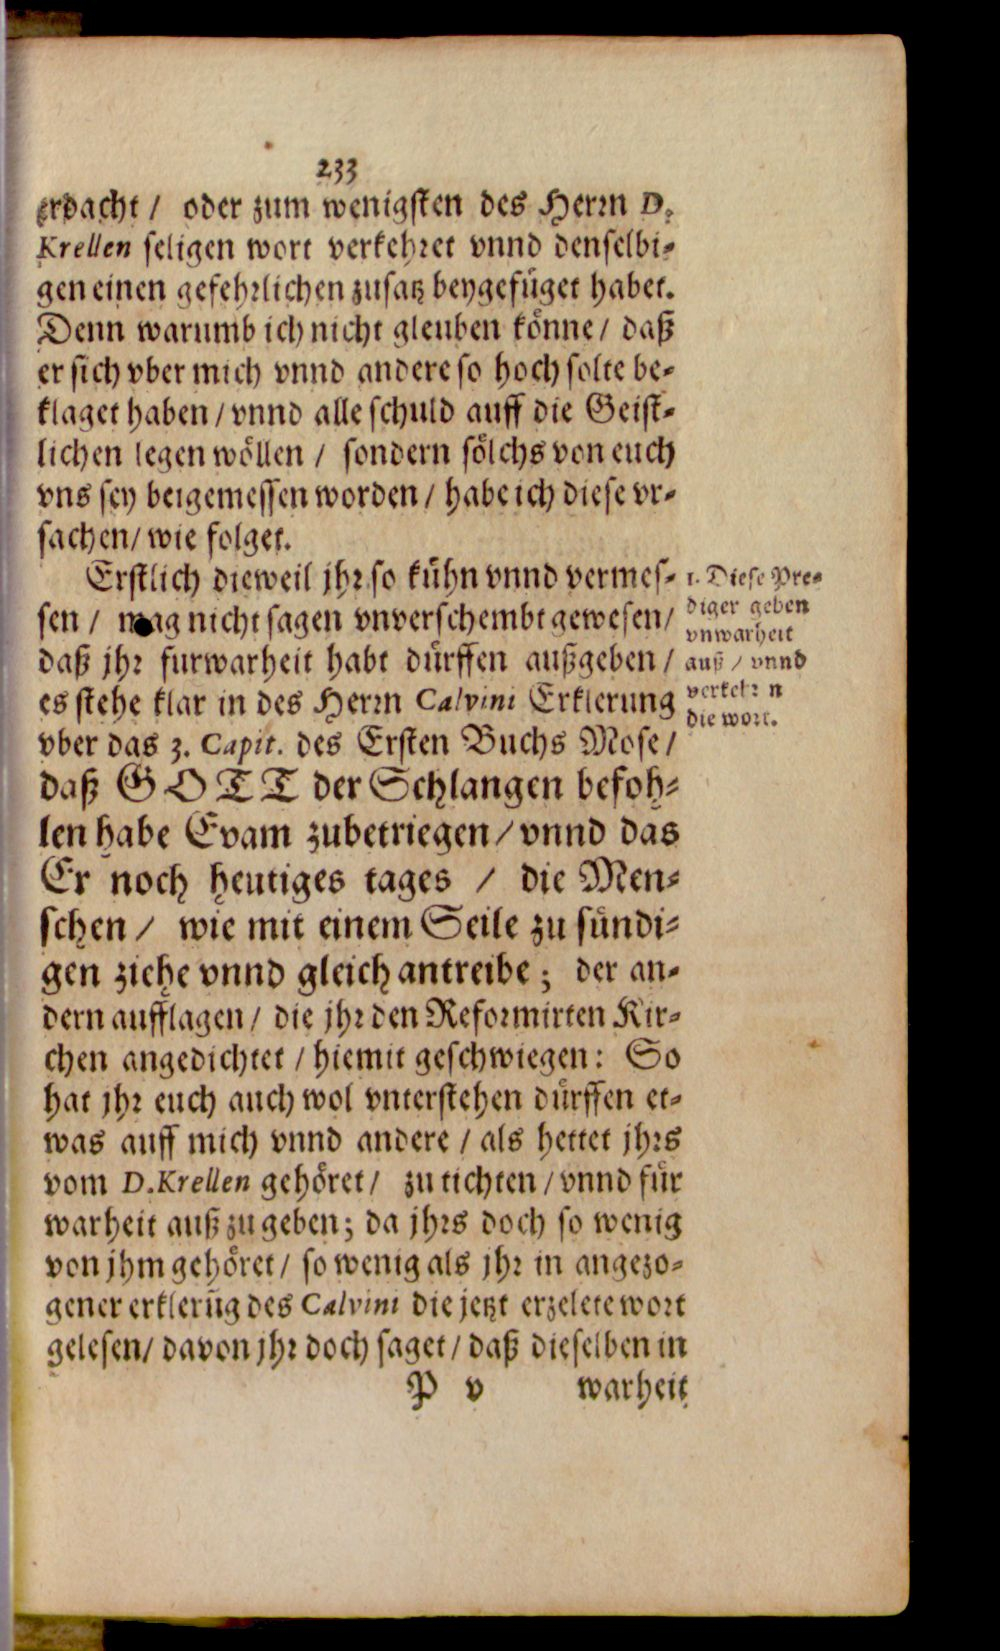 233
erdacht / oder zum wenigsten des Herrn D.
Krellen seligen wort verkehret vnnd denselbi-
gen einen gefehrlichen zusatz beygefüget habet.
Denn warumb ich nicht gleuben könne / daß
er sich vber mich vnnd andere so hoch solte be-
klaget haben / vnnd alle schuld auff die Geist-
lichen legen wöllen / sondern sölchs von euch
vns sey beigemessen worden / habe ich diese vr-
sachen / wie folget.
Erstlich dieweil jhr so kühn vnnd vermes-
sen / mag nicht sagen vnverschembt gewesen /
daß jhr furwarheit habt dürffen außgeben /
es stehe klar in des Herrn Calvini Erklerung
vber das 3. Capit. des Ersten Buchs Mose /
daß GOTT der Schlangen befoh-
len habe Evam zubetriegen / vnnd das
Er noch heutiges tages / die Men-
schen / wie mit einem Seile zu sündi-
gen ziehe vnnd gleich antreibe ; der an-
dern aufflagen / die jhr den Reformirten Kir-
chen angedichtet / hiemit geschwiegen : So
hat jhr euch auch wol vnterstehen dürffen et-
was auff mich vnnd andere / als hettet jhrs
vom D. Krellen gehöret / zu tichten / vnnd für
warheit auß zu geben ; da jhrs doch so wenig
von jhm gehöret / so wenig als jhr in angezo-
gener erklerūg des Calvini die jetzt erzelete wort
gelesen / davon jhr doch saget / daß dieselben in
P v warheit
1. Diese Pre-
diger geben
vnwarheit
auß / vnnd
verkehrn
die wort.